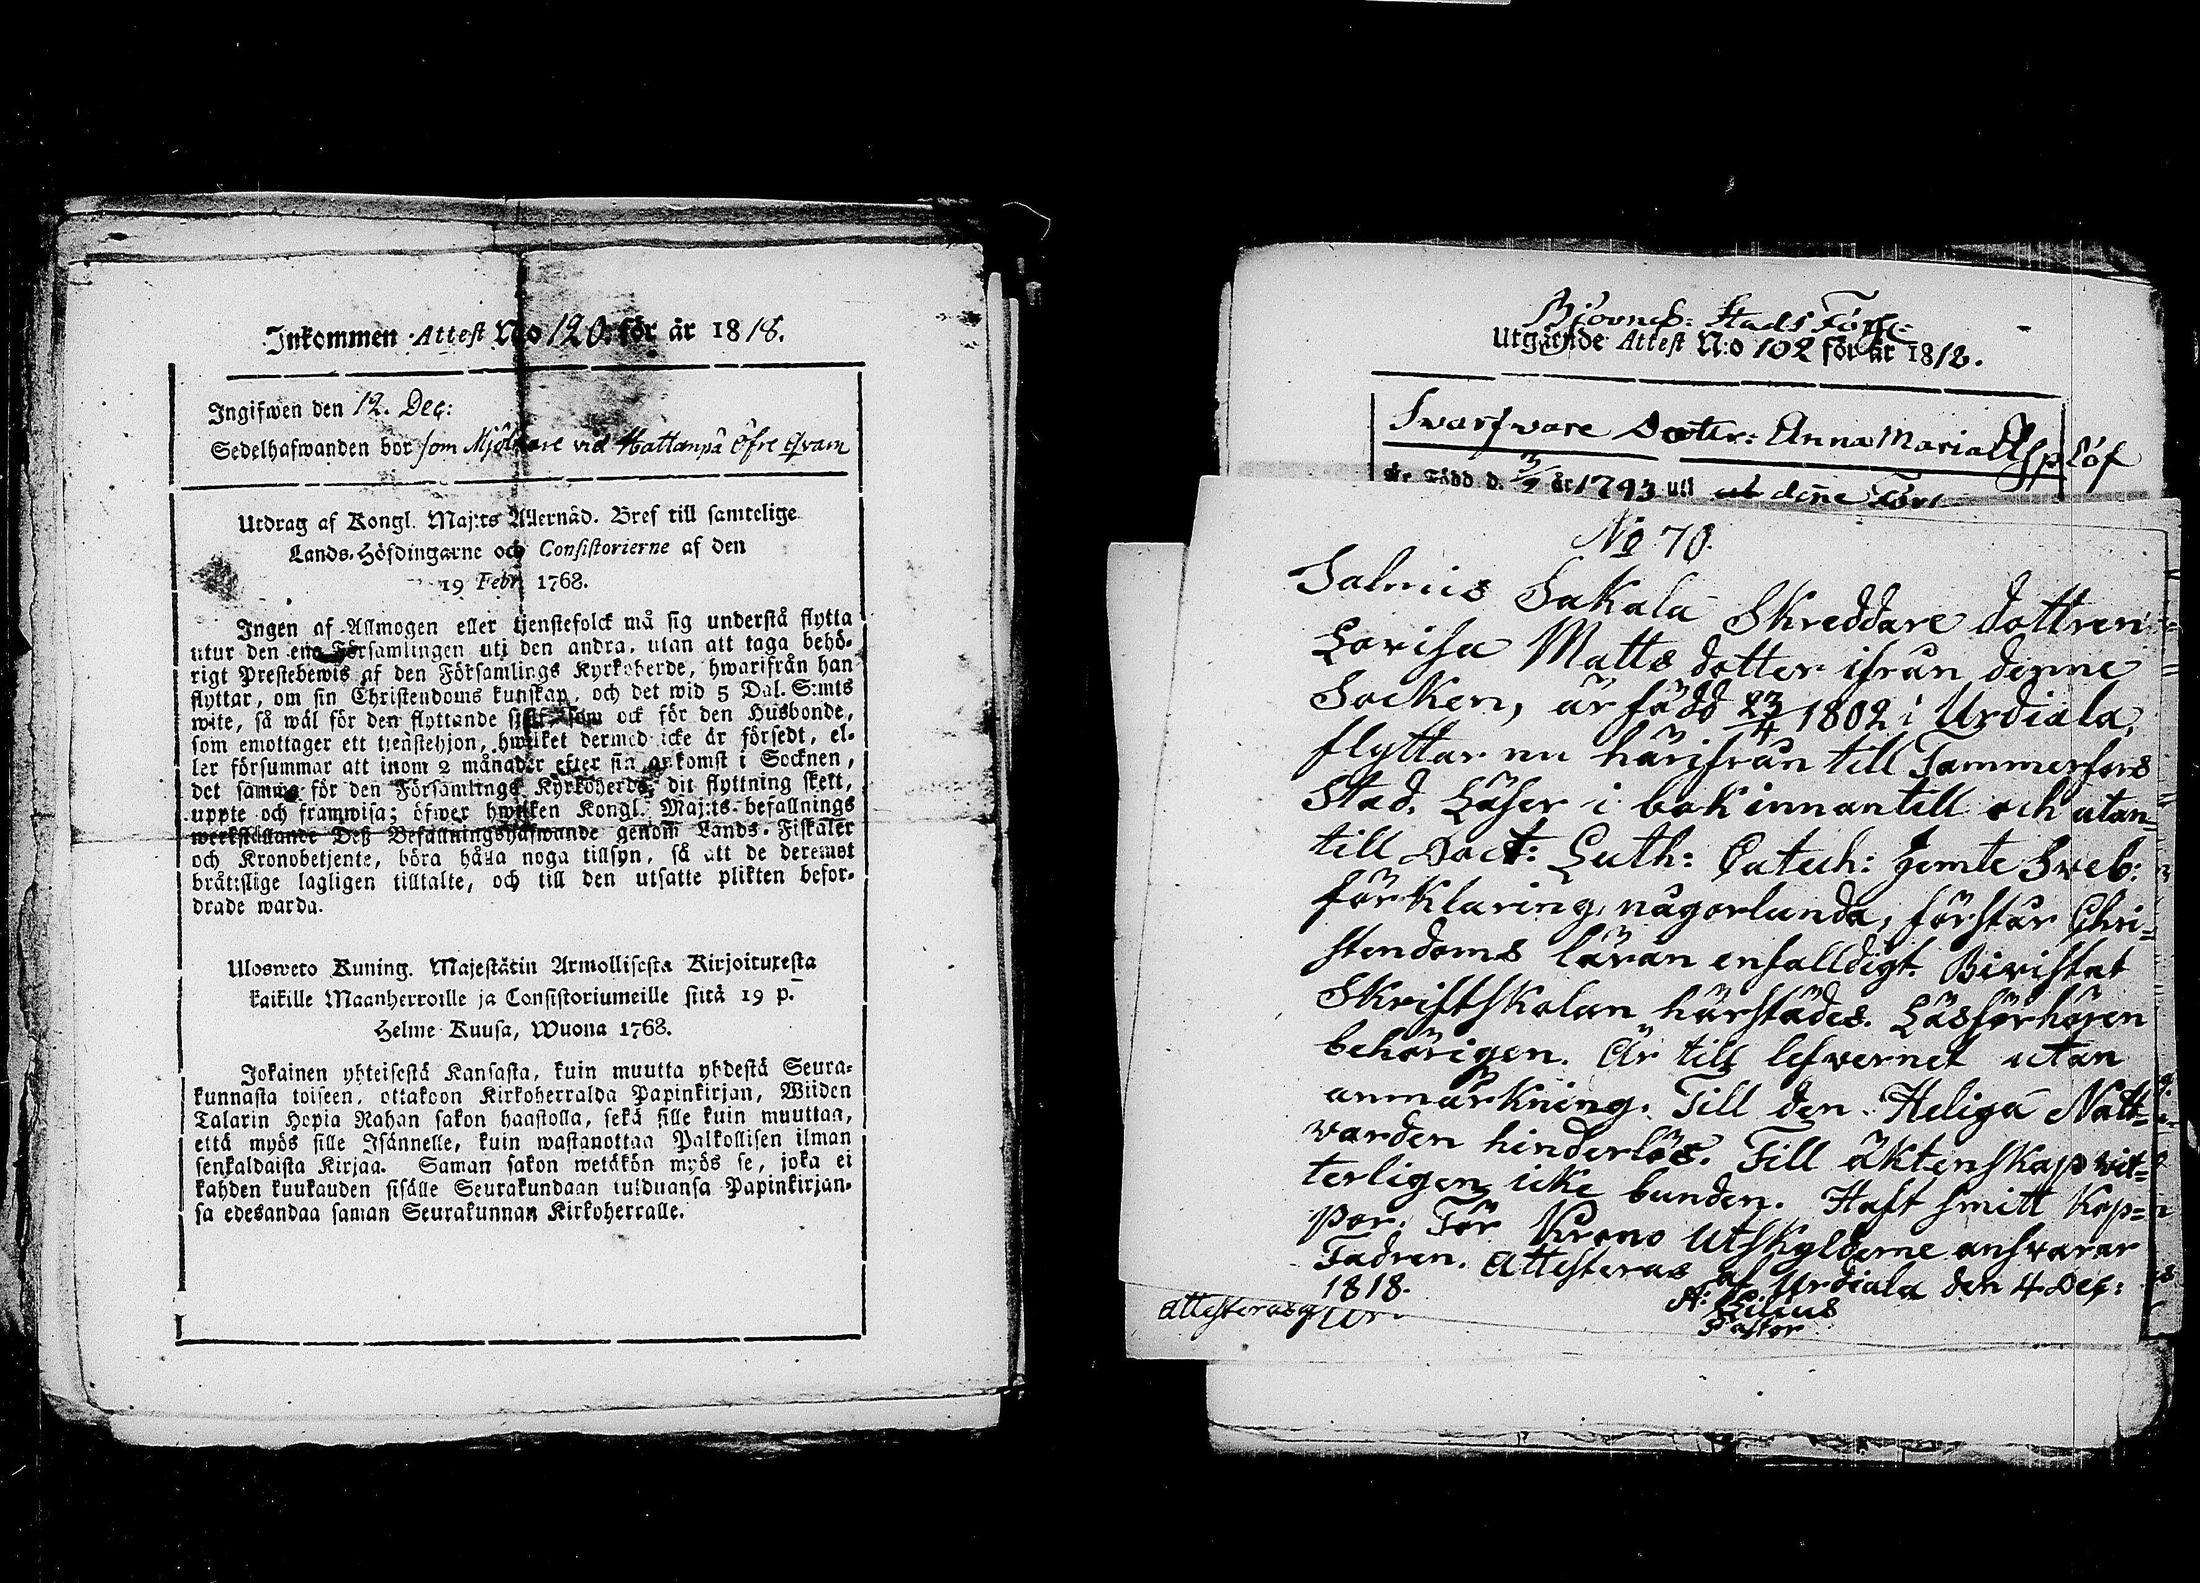 Inkommen Attest No 120. för år 1818.
Ingifwen den 12. Dec:
Sedelhafwanden bor som Mjölnare vid Hattanpä Öfre qvarn
Utdrag af Kongl. Maj:ts Allernåd. Bref till samtelige
Lands-Höfdingarne och Consistorierne af den
19 Febr. 1768.
Ingen af Allmogen eller tjenstefolck må sig understå flytta
utur den ena Församlingen uti den andra, utan att taga behö-
rigt Prestebewis af den Församlings Kyrkoherde, hwarifrån han
flyttar, om sin Christendoms kunskap, och det wid 5 Dal. S:mts
wite, så wäl för den flyttande sjelf, som ock för den Husbonde,
som emottager ett tjenstehjon, hwilket dermed icke är försedt, el-
ler försummar att inom 2 månader efter sin ankomst i Socknen,
det samma för den Församlings Kyrkoherde, dit flyttning skett,
uppte och framwisa; öfwer hwilken Kongl. Maj:ts befallnings
werkställande Deß Befallningshafwande genom Lands-Fiskaler
och Kronobetjente, böra hålla noga tillsyn, så att de deremot
bråttslige lagligen tilltalte, och till den utsatte plikten befor-
drade warda.
Ulosweto Kuning. Majestätin Armollisesta Kirjoituxesta
kaikille Maanherroille ja Consistoriumeille siitä 19 p.
Helme Kuusa, Wuona 1768.
Jokainen yhteisestä Kansasta, kuin muutta yhdestä Seura-
kunnasta toiseen, ottakoon Kirkoherralda Papinkirjan, Wiiden
Talarin Hopia Rahan sakon haastolla, sekä sille kuin muuttaa,
että myös sille Isännelle, kuin wastanottaa Palkollisen ilman
senkaldaista Kirjaa. Saman sakon wetäkön myös se, joka ei
kahden kuukauden sisälle Seurakundaan tulduansa Papinkirjan-
sa edesandaa saman Seurakunnan Kirkoherralle.
Björneb: Stads Förs:
Utgående Attest N:o 102 för år 1818.
Swarfware Dotter: Anna Maria Asplöf
är Född d. år 1793 uti denne Förs
No 70.
Salmis Sakala Skreddare dottren
Lovisa Matts dotter ifrån denne
Socken, är född 23/4 1802 i Urdiala,
flyttar nu härifrån till Tammerfors
Stad. Läser i bok innantill och utan-
till Doct: Luth: Catech: jemte Sveb:
förklaring någorlunda, förstår Chri-
stendoms läran enfalldigt. Bivistat
Skriftskolan härstädes. Läsförhören
behörigen. Är till lefvernet utan
anmärkning. Till den Heliga Natt-
varden hinderlös. Till äktenskap vit-
terligen icke bunden. Haft smitt Kop-
por. För Krono Utskylderne ansvarar
Fadren. Attesteras af Urdiala den 4 Dec:
1818.
A: Lilius
Pastor
Attesteras af Ur